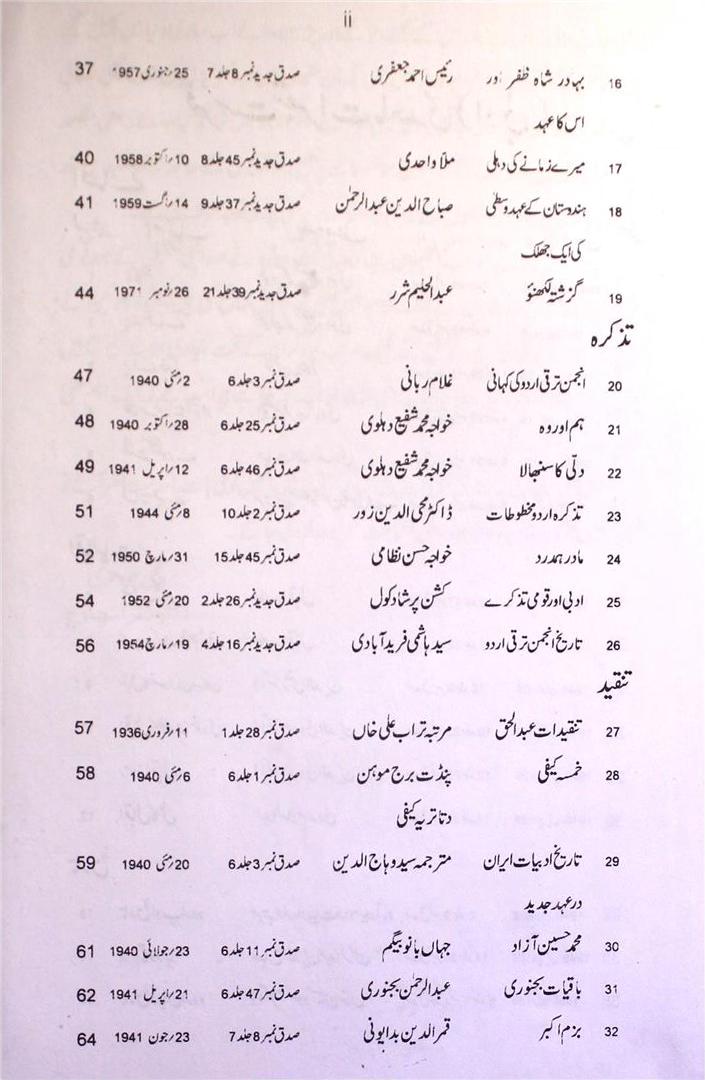 ii
16 بہادر شاہ ظفر اور رئیس احمد جعفری صدق جدید نمبر 8 جلد 7 25/جنوری 1957 37
اس کا عہد
17 میرے زمانے کی دہلی ملا واحدی صدق جدید نمبر 45 جلد 8 10/اکتوبر 1958 40
18 ہندوستان کے عہد وسطیٰ صباح الدین عبدالرحمٰن صدق جدید نمبر 37 جلد 9 14/اگست 1959 41
کی ایک جھلک
19 گزشتہ لکھنؤ عبدالحلیم شرر صدق جدید نمبر 39 جلد 21 26/نومبر 1971 44
تذکرہ
20 انجمن ترقی اردو کی کہانی غلام ربانی صدق نمبر 3 جلد 6 2/مئی 1940 47
21 ہم اور وہ خواجہ محمد شفیع دہلوی صدق نمبر 25 جلد 6 28/اکتوبر 1940 48
22 دلّی کا سنبھالا خواجہ محمد شفیع دہلوی صدق نمبر 46 جلد 6 12/اپریل 1941 49
23 تذکرہ اردو مخطوطات ڈاکٹر محی الدین زور صدق نمبر 2 جلد 10 8/مئی 1944 51
24 مادر ہمدرد خواجہ حسن نظامی صدق نمبر 45 جلد 15 31/مارچ 1950 52
25 ادبی اور قومی تذکرے کشن پرشاد کول صدق جدید نمبر 26 جلد 2 20/مئی 1952 54
26 تاریخ انجمن ترقی اردو سید ہاشمی فرید آبادی صدق جدید نمبر 16 جلد 4 19/مارچ 1954 56
تنقید
27 تنقیدات عبدالحق مرتبہ تراب علی خاں صدق نمبر 28 جلد 1 11/فروری 1936 57
28 خمسہ کیفی پنڈت برج موہن صدق نمبر 1 جلد 6 6/مئی 1940 58
دتاتریہ کیفی
29 تاریخ ادبیات ایران مترجمہ سید وہاج الدین صدق نمبر 3 جلد 6 20/مئی 1940 59
در عہد جدید
30 محمد حسین آزاد جہاں بانو بیگم صدق نمبر 11 جلد 6 23/جولائی 1940 61
31 باقیات بجنوری عبدالرحمٰن بجنوری صدق نمبر 47 جلد 6 21/اپریل 1941 62
32 بزم اکبر قمر الدین بدایونی صدق نمبر 8 جلد 7 23/جون 1941 64